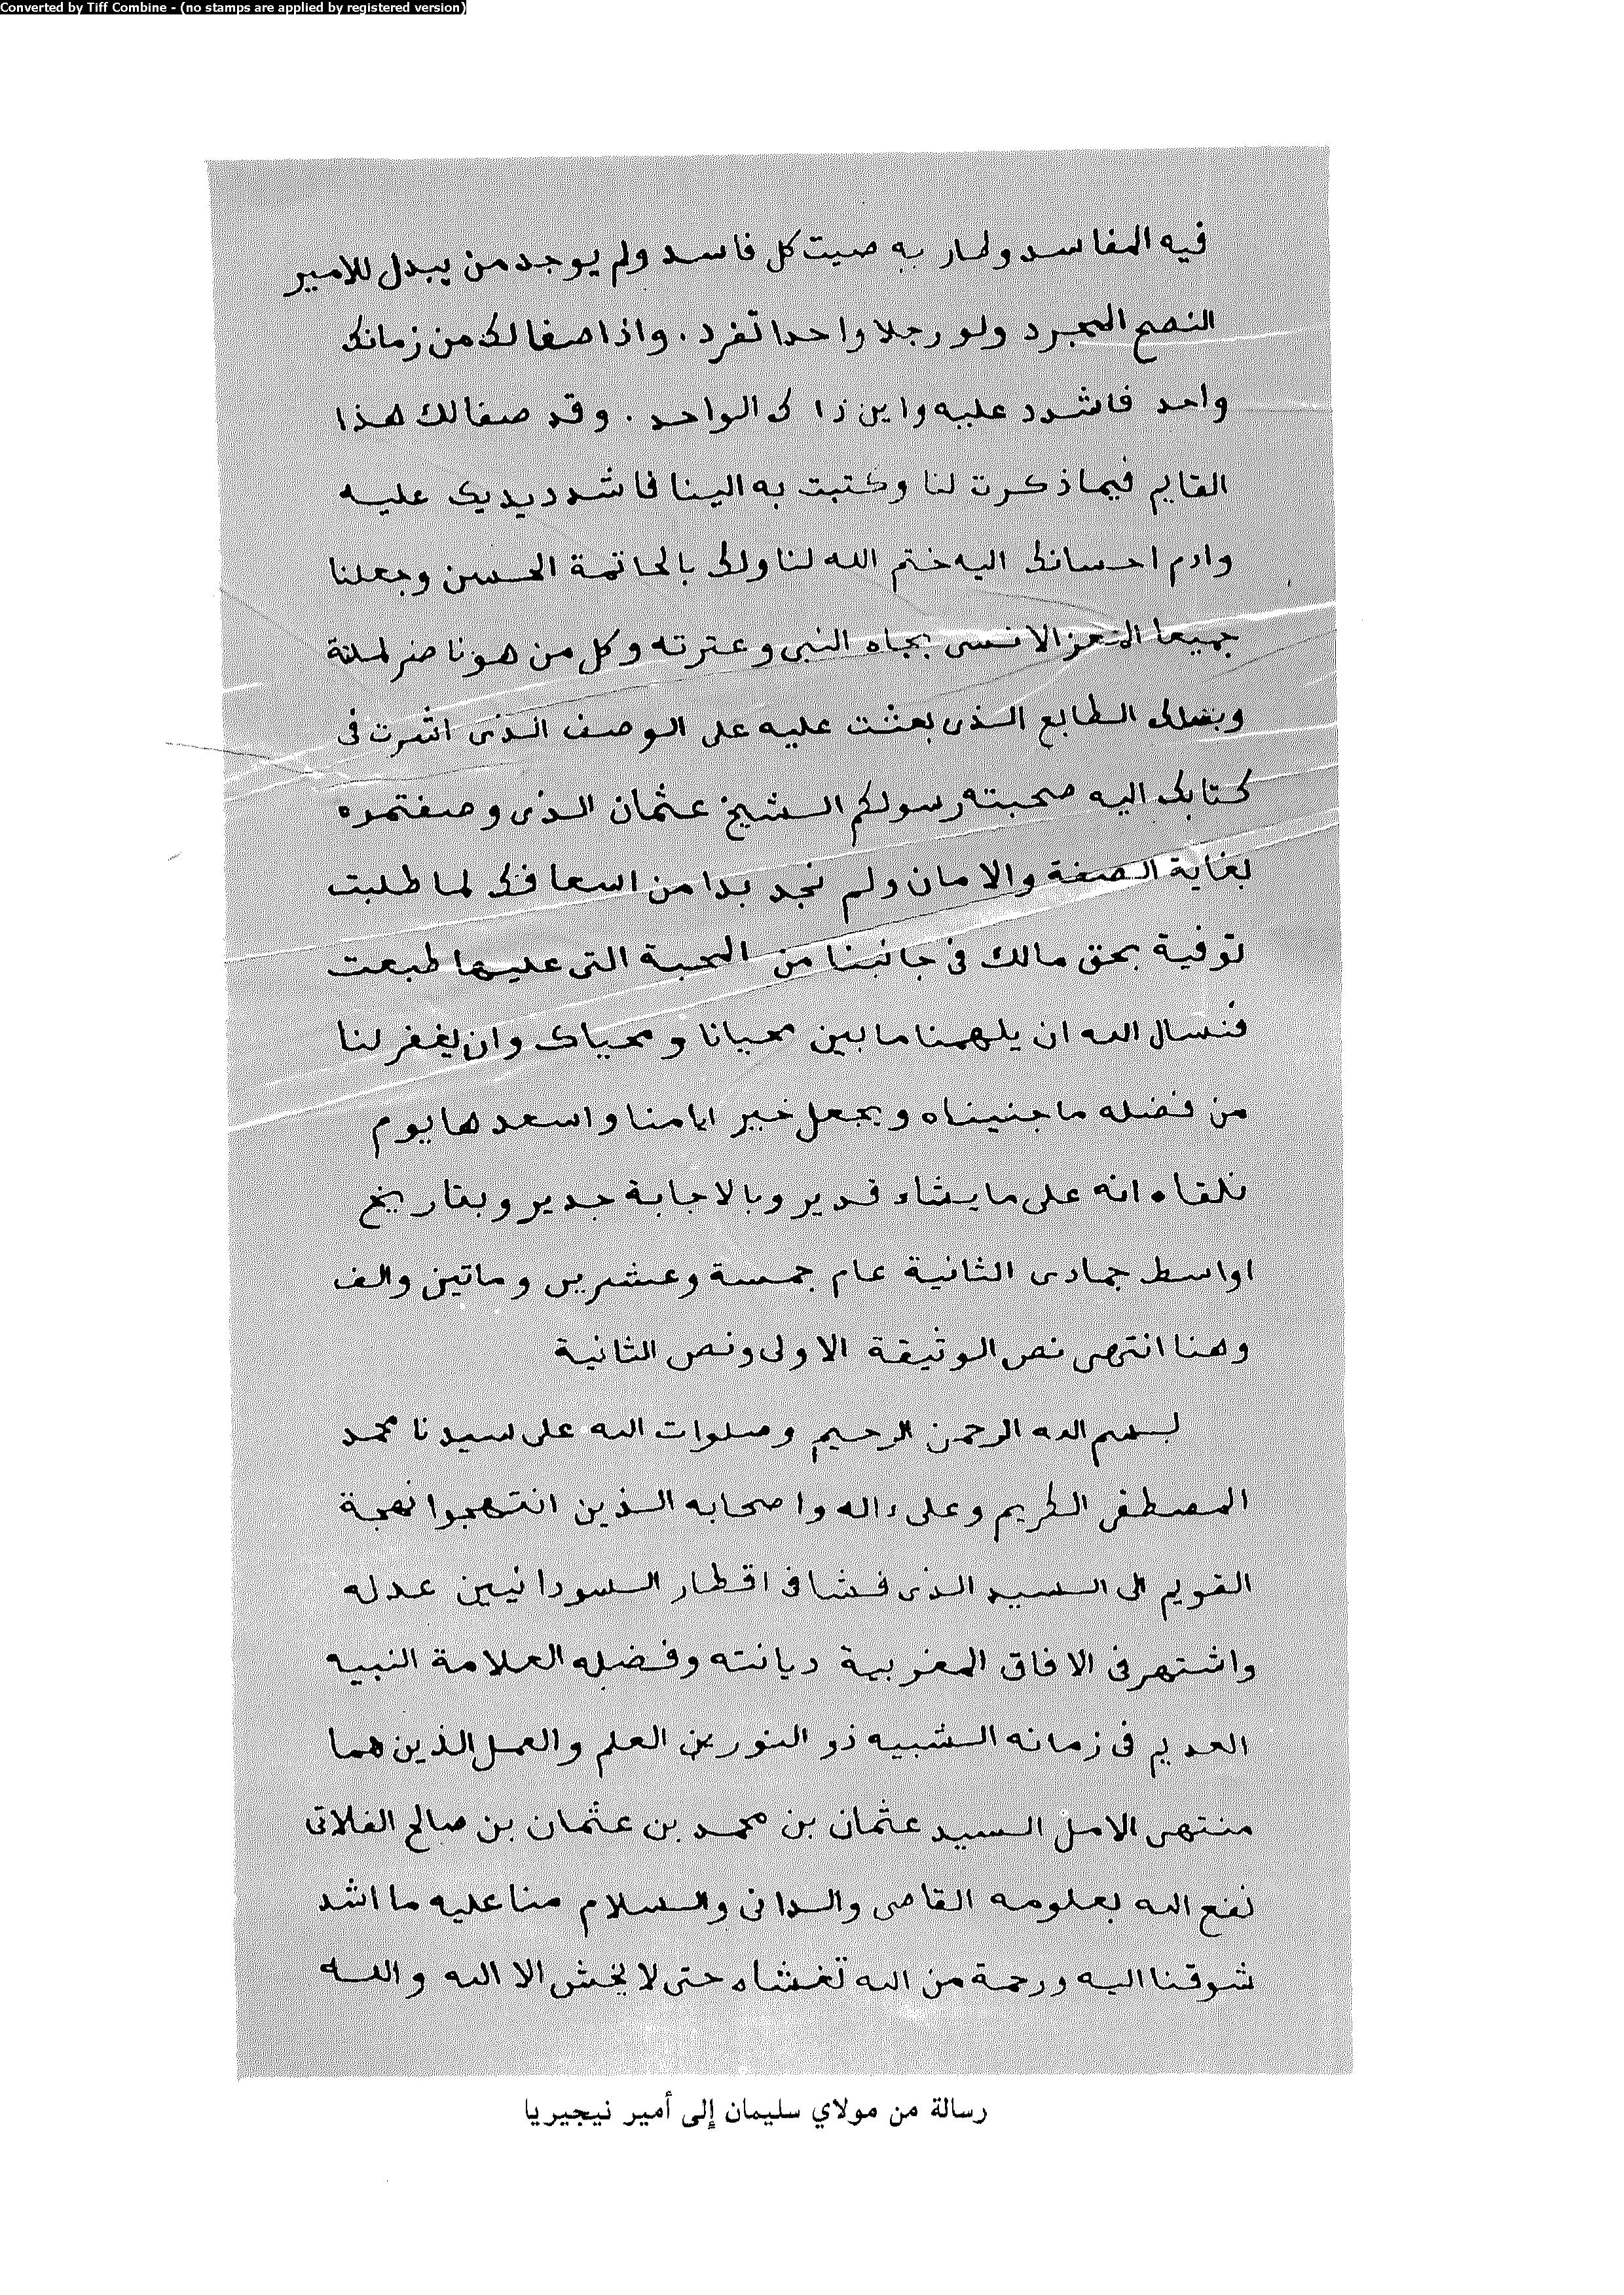 Converted by Tiff Combine - (no stamps are applied by registered version)
فيه المفاسد وطار به صيت كل فاسد ولم يوجد من يبدل للامير
النصح المجرد ولو رجلا واحدا تفرد . واذا صفا لك من زمانك
واحد فاشدد عليه واين ذاك الواحد . وقد صفا لك هذا
القايم فيما ذكرت لنا وكتبت به الينا فاشدد يديك عليه
وادم احسانك اليه ختم الله لنا ولك بالخاتمة الحسن وجعلنا
جميعا الانسى بجاه النبي وعترته وكل من هو
الطابع الذى بعثت عليه على الوصف الذى اشرت فى
كتابك اليه صحبته رسولكم الشيخ عثمان الذى وصفتموه
بغاية الصفة والامان ولم نجد بدا من اسعافك لما طلبت
توفية بحق مالك فى جانبنا من المحبة التى عليها طبعت
فنسال الله ان يلهمنا ما بين محيانا ومحياك وان يغفر لنا
من فضله ما جنيناه ويجعل خير ايامنا واسعدها يوم
نلقاه انه على ما يشاء قدير وبالاجابة جدير وبتاريخ
اواسط جمادى الثانية عام خمسة وعشرين وماتين والف
وهنا انتهى نص الوثيقة الاولى ونص الثانية
بسم الله الرحمن الرحيم وصلوات الله على سيدنا محمد
المصطفى الكريم وعلى ءاله واصحابه الذين انتهجوا نهجة
القويم الى السيد الذى فشا فى اقطار السودانيين عدله
واشتهر فى الافاق المغربية ديانته وفضله العلامة النبيه
العديم فى زمانه الشبيه ذو النورين العلم والعمل الذين هما
منتهى الامل السيد عثمان بن محمد بن عثمان بن صالح الفلاتى
نفع الله بعلومه القاصى والدانى والسلام منا عليه ما اشد
شوقنا اليه ورحمة من الله تغشاه حتى لا يخش الا الله والله
رسالة من مولاي سليمان إلى أمير نيجيريا